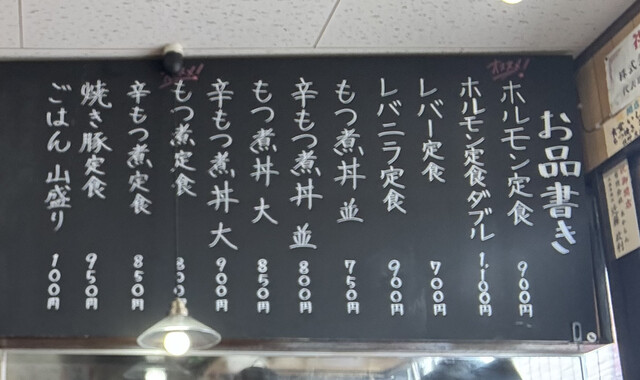 お品書き
オススメ!
ホルモン定食 900円
ホルモン定食ダブル 1,100円
レバー定食 700円
レバニラ定食 900円
もつ煮丼 並 750円
辛もつ煮丼 並 800円
もつ煮丼 大 850円
辛もつ煮丼 大 900円
もつ煮定食 800円
辛もつ煮定食 850円
焼き豚定食 950円
ごはん 山盛り 100円